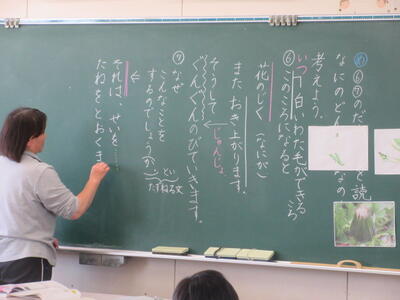 め ⑥⑦のだ 読
なにのどん なの
考えよう。
いつ 白いわた毛ができるころ
⑥このころになると
花のじく(なにが)
また おき上がります。
そうして じゅんじょ
ぐんぐんのびていきます。
⑦なぜ
こんなことを
するのでしょうか
とい
たずねる文
それは、せいを……
たねをとおくま